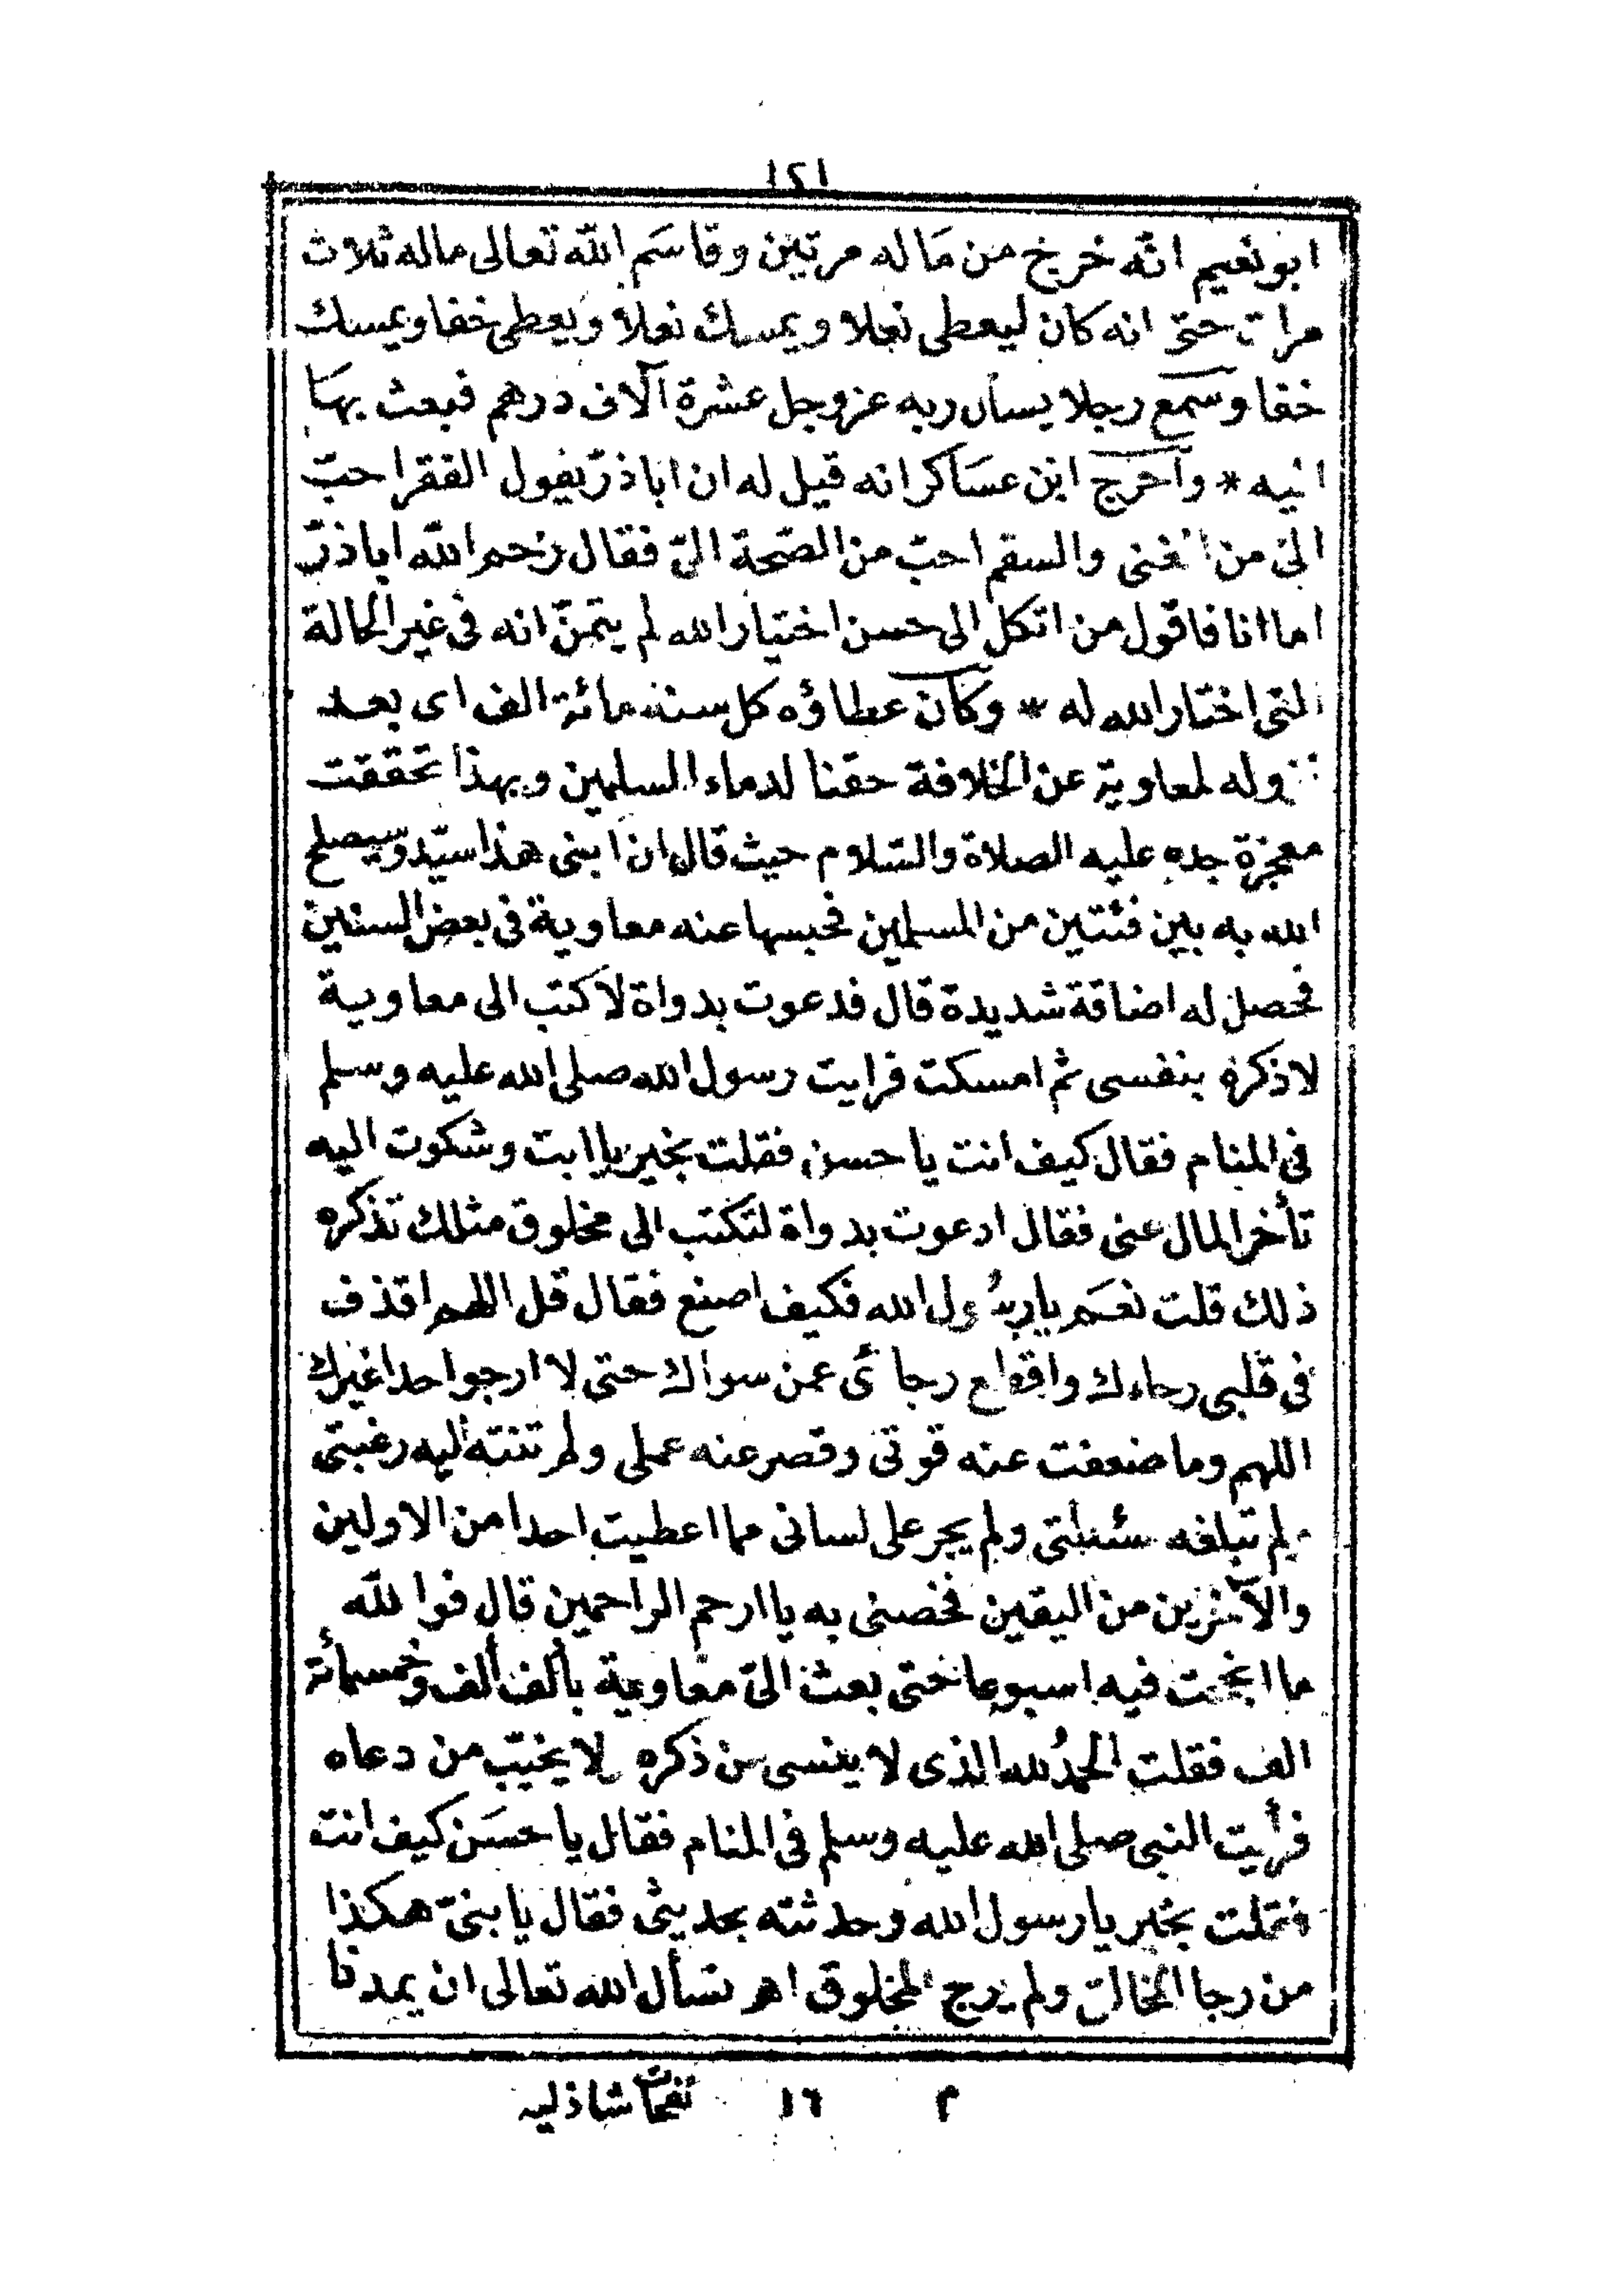 ١٢١
ابو نعيم انّه خرج من مَا له مرتين وقاسَم الله تعالى ماله ثلاث
مرات حتى انه كان ليعطى نعلا ويمسك نعلا ويعطى خفا ويمسك
خفا وسمع رجلا يسأل ربه عزوجل عشرة آلاف درهم فبعث بهَا
اليه * وآخرج ابن عسَاكر انه قيل له ان اباذرّ يقول الفقر احبّ
الىّ من الغنى والسقم احبّ من الصّحة الىّ فقال رحم الله اباذرّ
اما انا فاقول من اتكل الى حسن اختيار الله لم يتمنّ انه فى غير الحالة
التى اختار الله له * وكان عطاؤه كل سنة مائة الف اى بعد
نزوله لمعاوية عن الخلافة حقنا لدماء المسلمين وبهذا تحققت
معجزة جده عليه الصلاة والسّلام حيث قال ان ابنى هذا سيّد وسيصلح
الله به بين فئتين من المسلمين فحبسها عنه معاوية فى بعض السنين
فحصل له اضاقة شديدة قال فدعوت بدواة لاكتب الى معاوية
لاذكره بنفسى ثم امسكت فرايت رسول الله صلى الله عليه وسلم
فى المنام فقال كيف انت يا حسن فقلت بخير يا ابت وشكوت اليه
تأخر المال عنى فقال ادعوت بدواة لتكتب الى مخلوق مثلك تذكره
ذلك قلت نعَم يا رسُول الله فكيف اصنع فقال قل اللهم اقذف
فى قلبى رجاءك واقطع رجائى عمن سواك حتى لا ارجوا حدا غيرك
اللهم وما ضعفت عنه قوتى وقصر عنه عملى ولم تنته اليه رغبتى
ولم تبلغه مسئلتى ولم يجر على لسانى مما اعطيت احدا من الاولين
والآخرين من اليقين فخصنى به يا ارحم الراحمين قال فوالله
ما انجحت فيه اسبوعا حتى بعث الىّ معاوية بألف ألف وخمسمائة
الف فقلت الحمدُ لله الذى لا ينسى من ذكره ولا يخيّب من دعاه
فرأيت النبى صلى الله عليه وسلم فى المنام فقال يا حسَن كيف انت
فقلت بخير يا رسول الله وحدثته بحديثى فقال يا بنىّ هكذا
من رجا الخالق ولم يرج المخلوق اهـ نسأل الله تعالى ان يمدنا
م ١٦ نفحات شاذليه